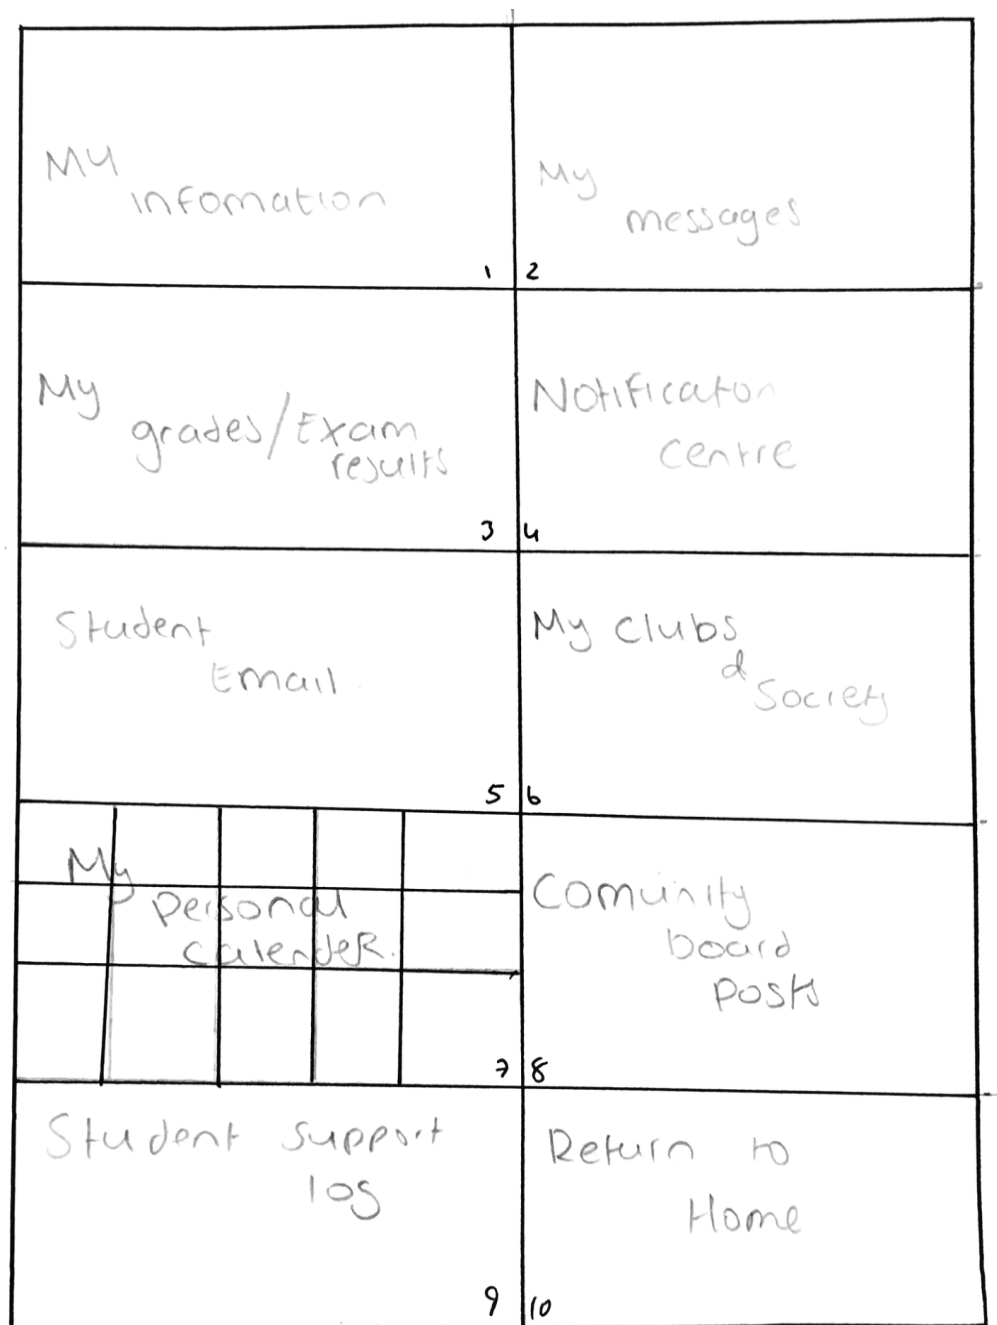 My
infomation
1
My
messages
2
My
grades/Exam
results
3
Notificaton
centre
4
Student
Email
5
My clubs
&
Society
6
My
personal
calendeR.
7
Comunity
board
posts
8
Student support
log
9
Return to
Home
10